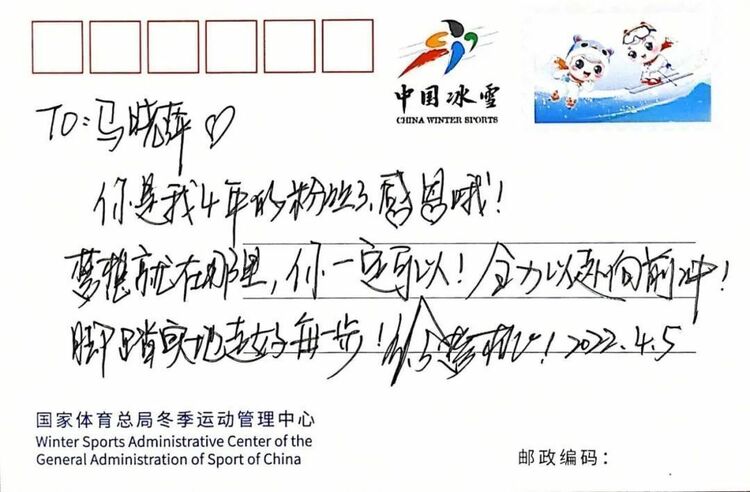 中国冰雪
CHINA WINTER SPORTS
TO:马晓萍♡
你是我4年的粉丝了,感恩哦!
梦想就在那里,你一定可以!全力以赴向前冲!
脚踏实地走好每一步! 2022.4.5
国家体育总局冬季运动管理中心
Winter Sports Administrative Center of the
General Administration of Sport of China
邮政编码: